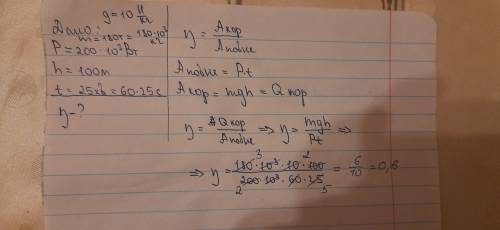 g = 10 Н/кг
Дано:
m = 180т = 180·10³ кг
P = 200·10³ Вт
h = 100м
t = 25хв = 60·25 с
η - ?
η = Aкор/Aповне
Aповне = Pt
Aкор = mgh = Qкор
η = Qкор/Aповне ⇒ η = mgh/Pt ⇒
⇒ η = 180·10³·10·100/200·10³·60·25 = 6/10 = 0,6